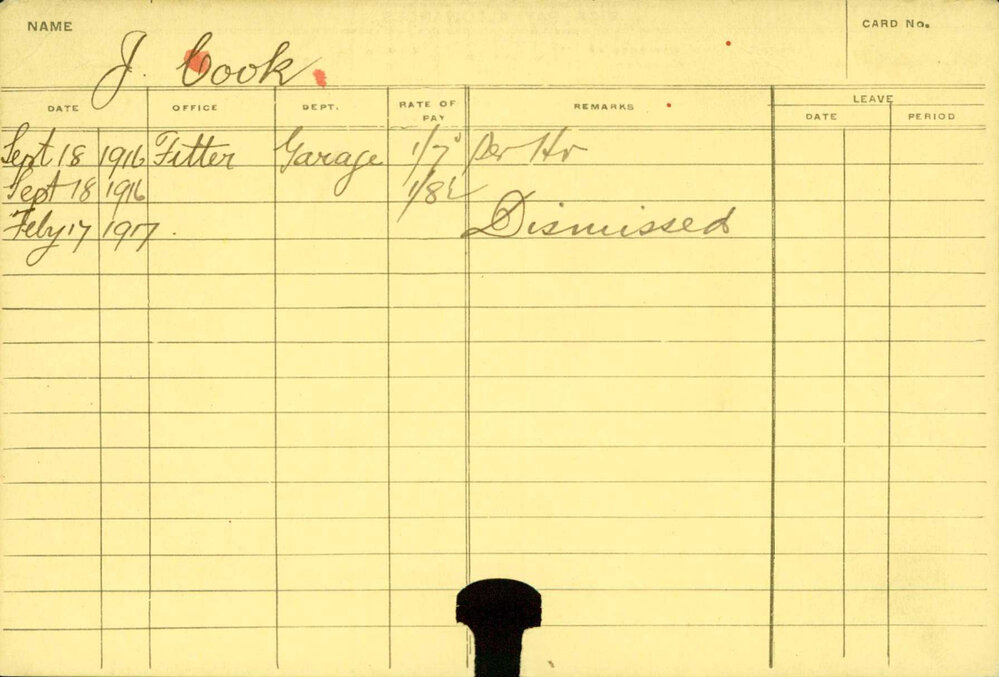 NAME J. Cook CARD No.
DATE OFFICE DEPT. RATE OF PAY REMARKS LEAVE
DATE PERIOD
Sept 18 1916 Fitter Garage 1/7 Per Hr
Sept 18 1916
Feby 17 1917. Dismissed